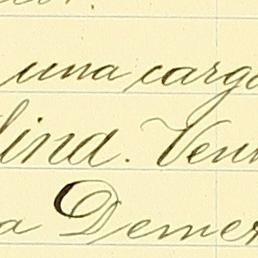 una carga
lina. Ven
a Demer